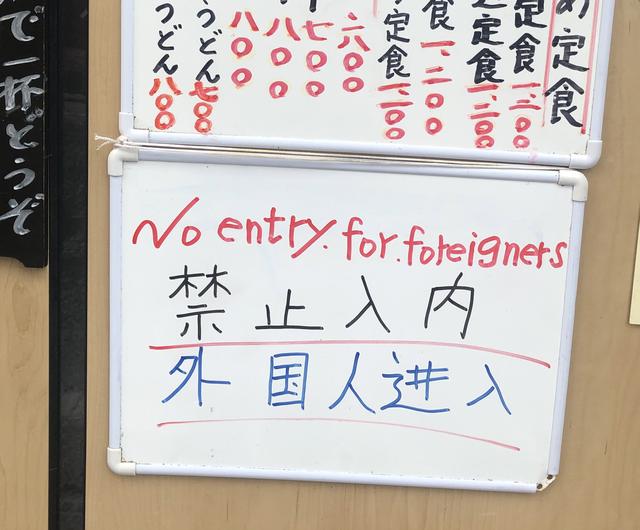 め定食
定食 一、三〇〇
定食 一、二〇〇
食 一、二〇〇
定食 一、二〇〇
六〇〇
七〇〇
八〇〇
八〇〇
うどん 七〇〇
うどん 八〇〇
で一杯どうぞ
No entry. for. foreigners
禁止入内
外国人进入